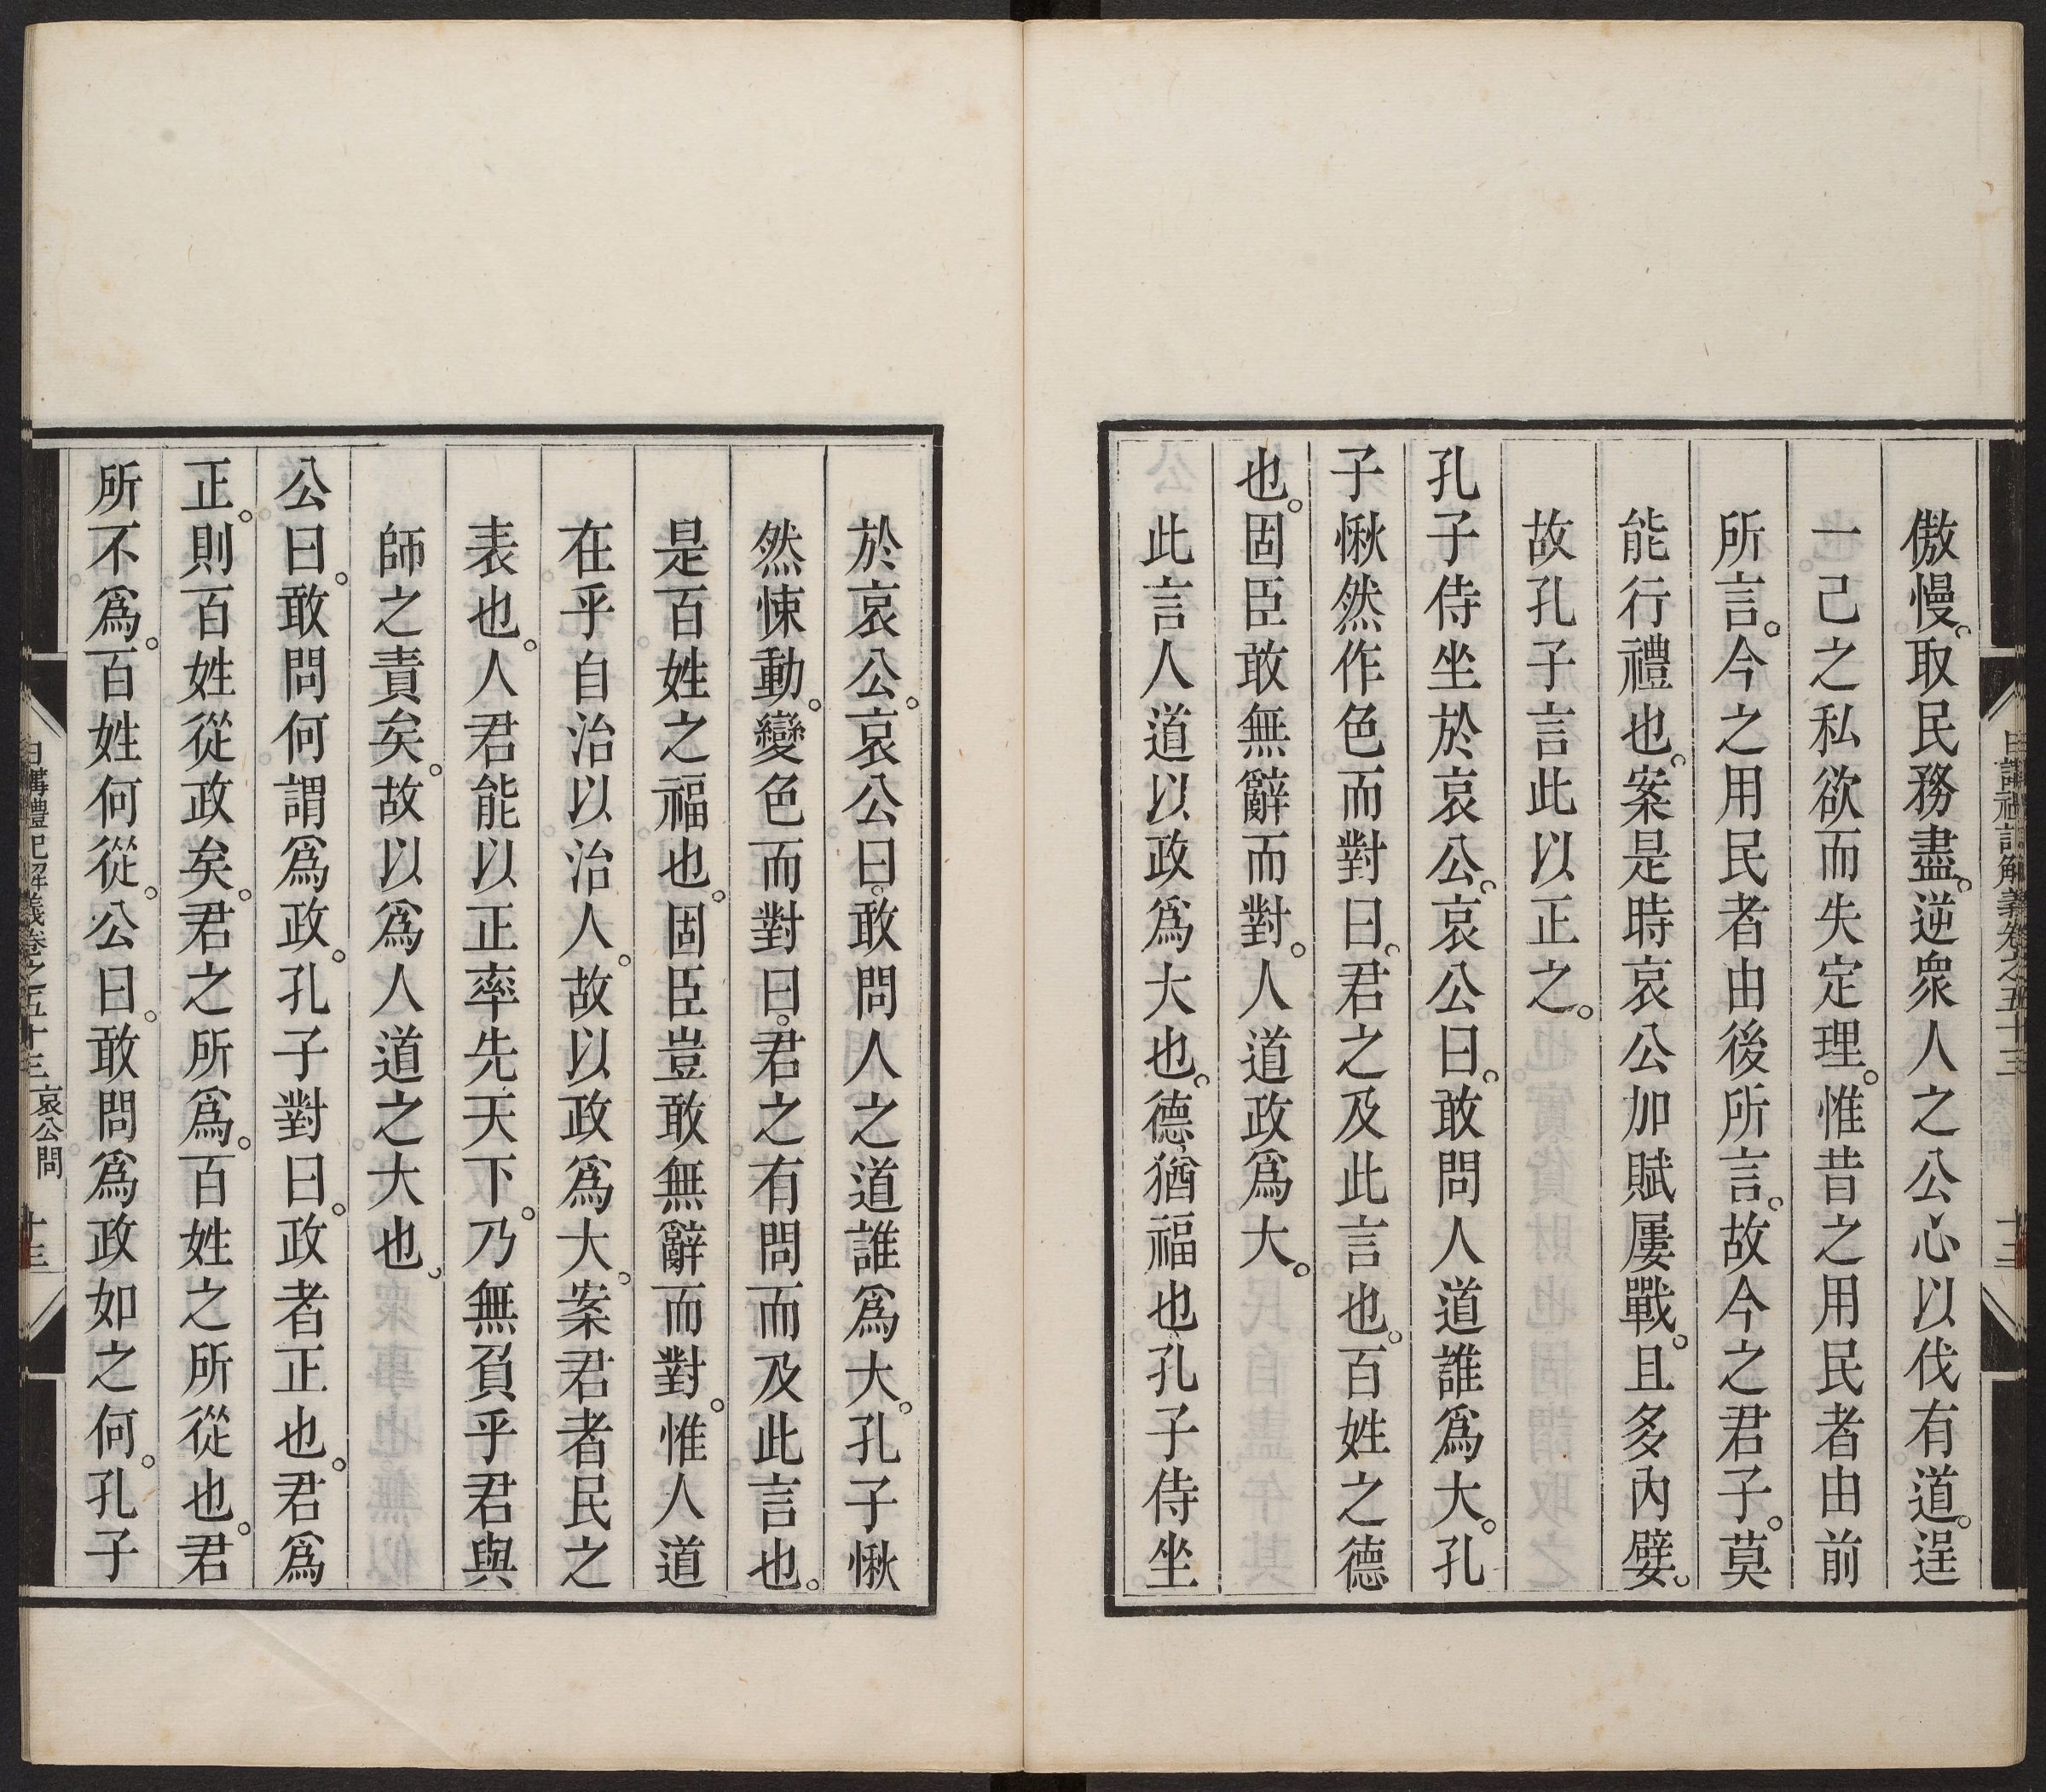 傲慢。取民務盡。逆衆人之公心以伐有道。逞
一己之私欲而失定理。惟昔之用民者由前
所言。今之用民者由後所言。故今之君子。莫
能行禮也。案是時哀公加賦屢戰。且多內嬖。
故孔子言此以正之。
孔子侍坐於哀公。哀公曰。敢問人道誰爲大。孔
子愀然作色而對曰。君之及此言也。百姓之德
也。固臣敢無辭而對。人道政爲大。
此言人道以政爲大也。德、猶福也、孔子侍坐
於哀公。哀公曰。敢問人之道誰爲大。孔子愀
然悚動。變色而對曰。君之有問而及此言也。
是百姓之福也。固臣豈敢無辭而對。惟人道
在乎自治以治人。故以政爲大。案君者民之
表也。人君能以正率先天下。乃無負乎君與
師之責矣。故以爲人道之大也。
公曰。敢問何謂爲政。孔子對曰。政者正也。君爲
正。則百姓從政矣。君之所爲。百姓之所從也。君
所不爲。百姓何從。公曰。敢問爲政如之何。孔子
日講禮記解義卷之五十三 哀公問 十三